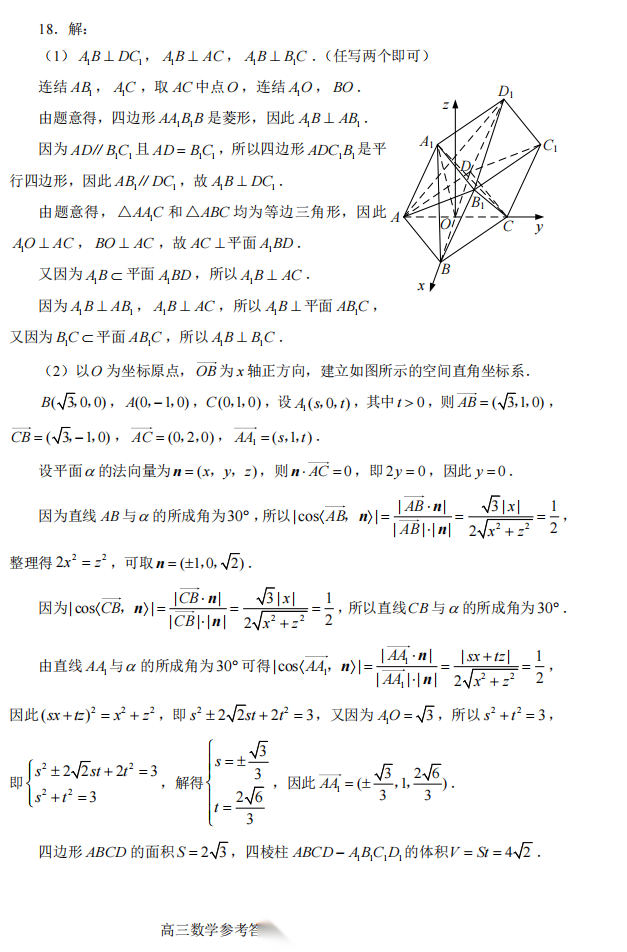 18.解:
(1) A₁B⊥DC₁, A₁B⊥AC, A₁B⊥B₁C.(任写两个即可)
连结 AB₁, A₁C, 取 AC 中点 O, 连结 A₁O, BO.
由题意得, 四边形 AA₁B₁B 是菱形, 因此 A₁B⊥AB₁.
因为 AD∥B₁C₁ 且 AD=B₁C₁, 所以四边形 ADC₁B₁ 是平
行四边形, 因此 AB₁∥DC₁, 故 A₁B⊥DC₁.
由题意得, △AA₁C 和 △ABC 均为等边三角形, 因此
A₁O⊥AC, BO⊥AC, 故 AC⊥平面 A₁BD.
又因为 A₁B⊂平面 A₁BD, 所以 A₁B⊥AC.
因为 A₁B⊥AB₁, A₁B⊥AC, 所以 A₁B⊥平面 AB₁C,
又因为 B₁C⊂平面 AB₁C, 所以 A₁B⊥B₁C.
z
D₁
A₁
C₁
D
B₁
A
O
C
y
B
x
(2) 以 O 为坐标原点, \overrightarrow{OB} 为 x 轴正方向, 建立如图所示的空间直角坐标系.
B(√3,0,0), A(0,-1,0), C(0,1,0), 设 A₁(s,0,t), 其中 t>0, 则 \overrightarrow{AB}=(√3,1,0),
\overrightarrow{CB}=(√3,-1,0), \overrightarrow{AC}=(0,2,0), \overrightarrow{AA₁}=(s,1,t).
设平面 α 的法向量为 n=(x, y, z), 则 n·\overrightarrow{AC}=0, 即 2y=0, 因此 y=0.
因为直线 AB 与 α 的所成角为 30°, 所以 |cos⟨\overrightarrow{AB}, n⟩|=\frac{|\overrightarrow{AB}·n|}{|\overrightarrow{AB}|·|n|}=\frac{√3|x|}{2\sqrt{x²+z²}}=\frac{1}{2},
整理得 2x²=z², 可取 n=(±1,0,√2).
因为 |cos⟨\overrightarrow{CB}, n⟩|=\frac{|\overrightarrow{CB}·n|}{|\overrightarrow{CB}|·|n|}=\frac{√3|x|}{2\sqrt{x²+z²}}=\frac{1}{2}, 所以直线 CB 与 α 的所成角为 30°.
由直线 AA₁ 与 α 的所成角为 30° 可得 |cos⟨\overrightarrow{AA₁}, n⟩|=\frac{|\overrightarrow{AA₁}·n|}{|\overrightarrow{AA₁}|·|n|}=\frac{|sx+tz|}{2\sqrt{x²+z²}}=\frac{1}{2},
因此 (sx+tz)²=x²+z², 即 s²±2√2st+2t²=3, 又因为 A₁O=√3, 所以 s²+t²=3,
即 \begin{cases}s²±2√2st+2t²=3\\s²+t²=3\end{cases}, 解得 \begin{cases}s=±\frac{√3}{3}\\t=\frac{2√6}{3}\end{cases}, 因此 \overrightarrow{AA₁}=(±\frac{√3}{3},1,\frac{2√6}{3}).
四边形 ABCD 的面积 S=2√3, 四棱柱 ABCD-A₁B₁C₁D₁ 的体积 V=St=4√2.
高三数学参考答